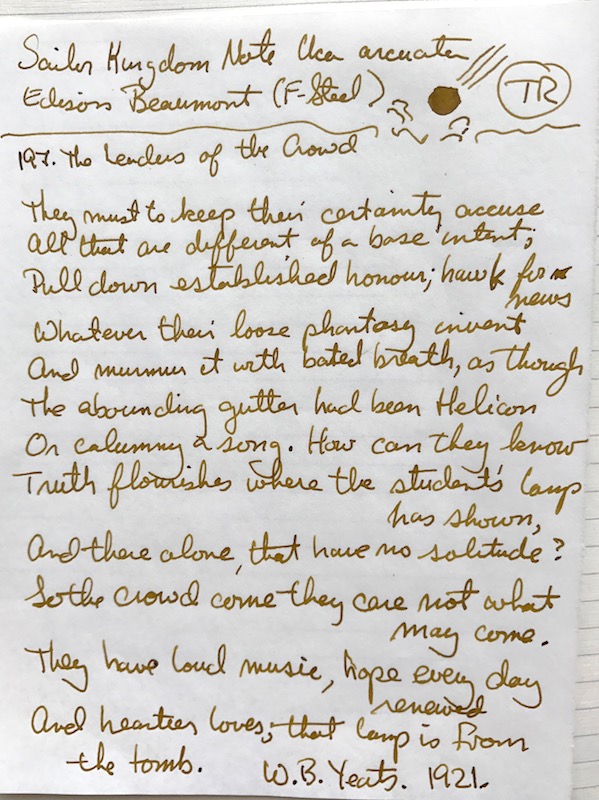 Sailor Kingdom Note Uca arcuata
Edison Beaumont (F-Steel)
TR
197. The Leaders of the Crowd
They must to keep their certainty accuse
All that are different of a base intent;
Pull down established honour; hawk for
news
Whatever their loose phantasy invent
And murmur it with bated breath, as though
The abounding gutter had been Helicon
Or calumny a song. How can they know
Truth flourishes where the student's lamp
has shown,
And there alone, that have no solitude?
So the crowd come they care not what
may come.
They have loud music, hope every day
renewed
And heartier loves; that lamp is from
the tomb. W.B. Yeats. 1921.